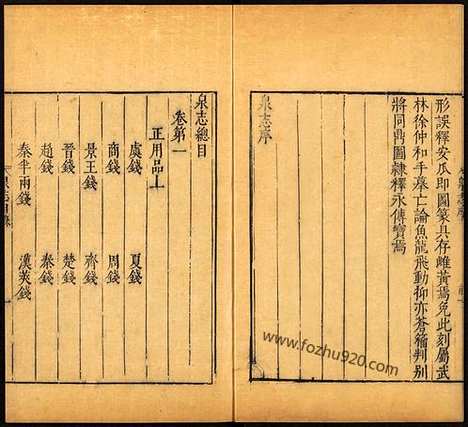 形誤釋安瓜即圖篆具存雌黃焉免此刻屬武
林徐仲和手摹亡論魚龍飛動抑亦蒼籀判別
將同鼎圖隷釋永傳寶焉
泉志序
泉志總目
卷第一
正用品上
虞錢 夏錢
商錢 周錢
景王錢 齊錢
晉錢 楚錢
趙錢 秦錢
秦半兩錢 漢莢錢
www.fozhu920.com